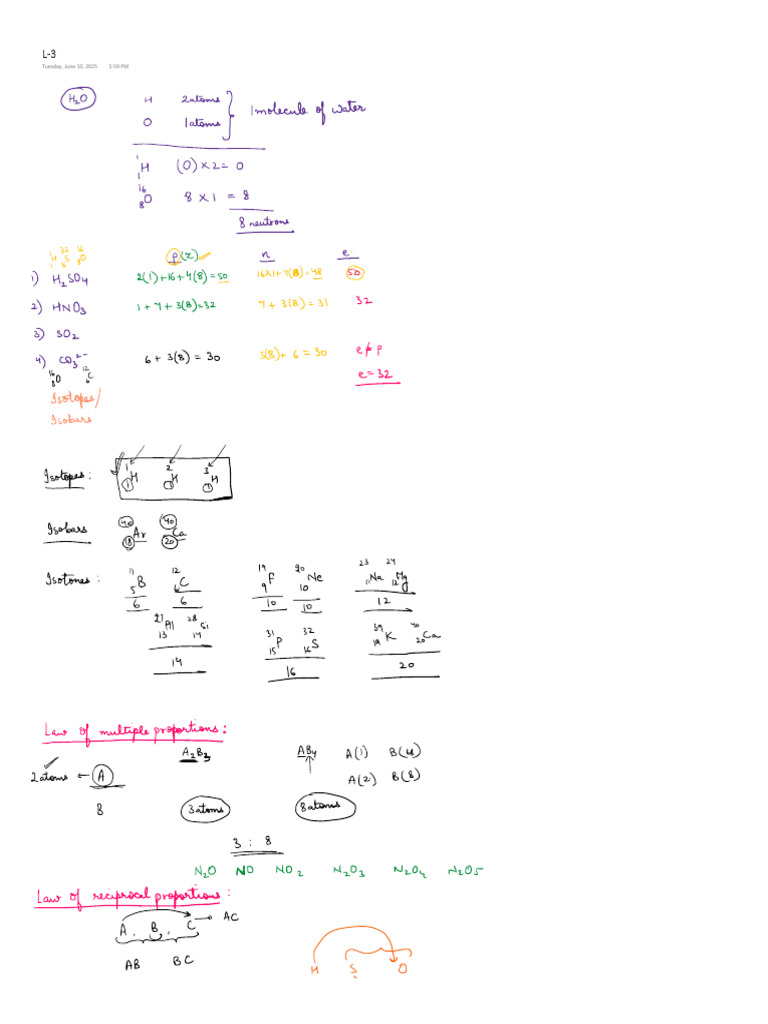 L-3
Tuesday, June 10, 2025 5:59 PM
H₂O H 2 atoms
O 1 atoms
1 molecule of water
¹₁H (0) × 2 = 0
¹⁶₈O 8 × 1 = 8
8 neutrons
¹₁H ³²S ¹⁶₈O p (z) n e⁻
1) H₂SO₄ 2(1)+16+4(8)=50 16×1+4(8)=48 50
2) HNO₃ 1+7+3(8)=32 7+3(8)=31 32
3) SO₂
4) CO₃²⁻ 6+3(8)=30 3(8)+6=30 e≠p
¹⁶₈O ¹²₆C e=32
Isotopes/
Isobars
Isotopes: ¹₁H ²₁H ³₁H
Isobars ⁴⁰₁₈Ar ⁴⁰₂₀Ca
Isotones: ¹¹₅B ¹²₆C ¹⁹₉F ²⁰₁₀Ne ²³₁₁Na ²⁴₁₂Mg
6 6 10 10 12
²⁷₁₃Al ²⁸₁₄Si ³¹₁₅P ³²₁₆S ³⁹₁₉K ⁴⁰₂₀Ca
14 16 20
Law of multiple proportions:
A₂B₃ AB₄ A(1) B(4)
2 atoms ← A A(2) B(8)
B 3 atoms 8 atoms
3 : 8
N₂O NO NO₂ N₂O₃ N₂O₄ N₂O₅
Law of reciprocal proportions:
A, B, C → AC
AB BC
H S O